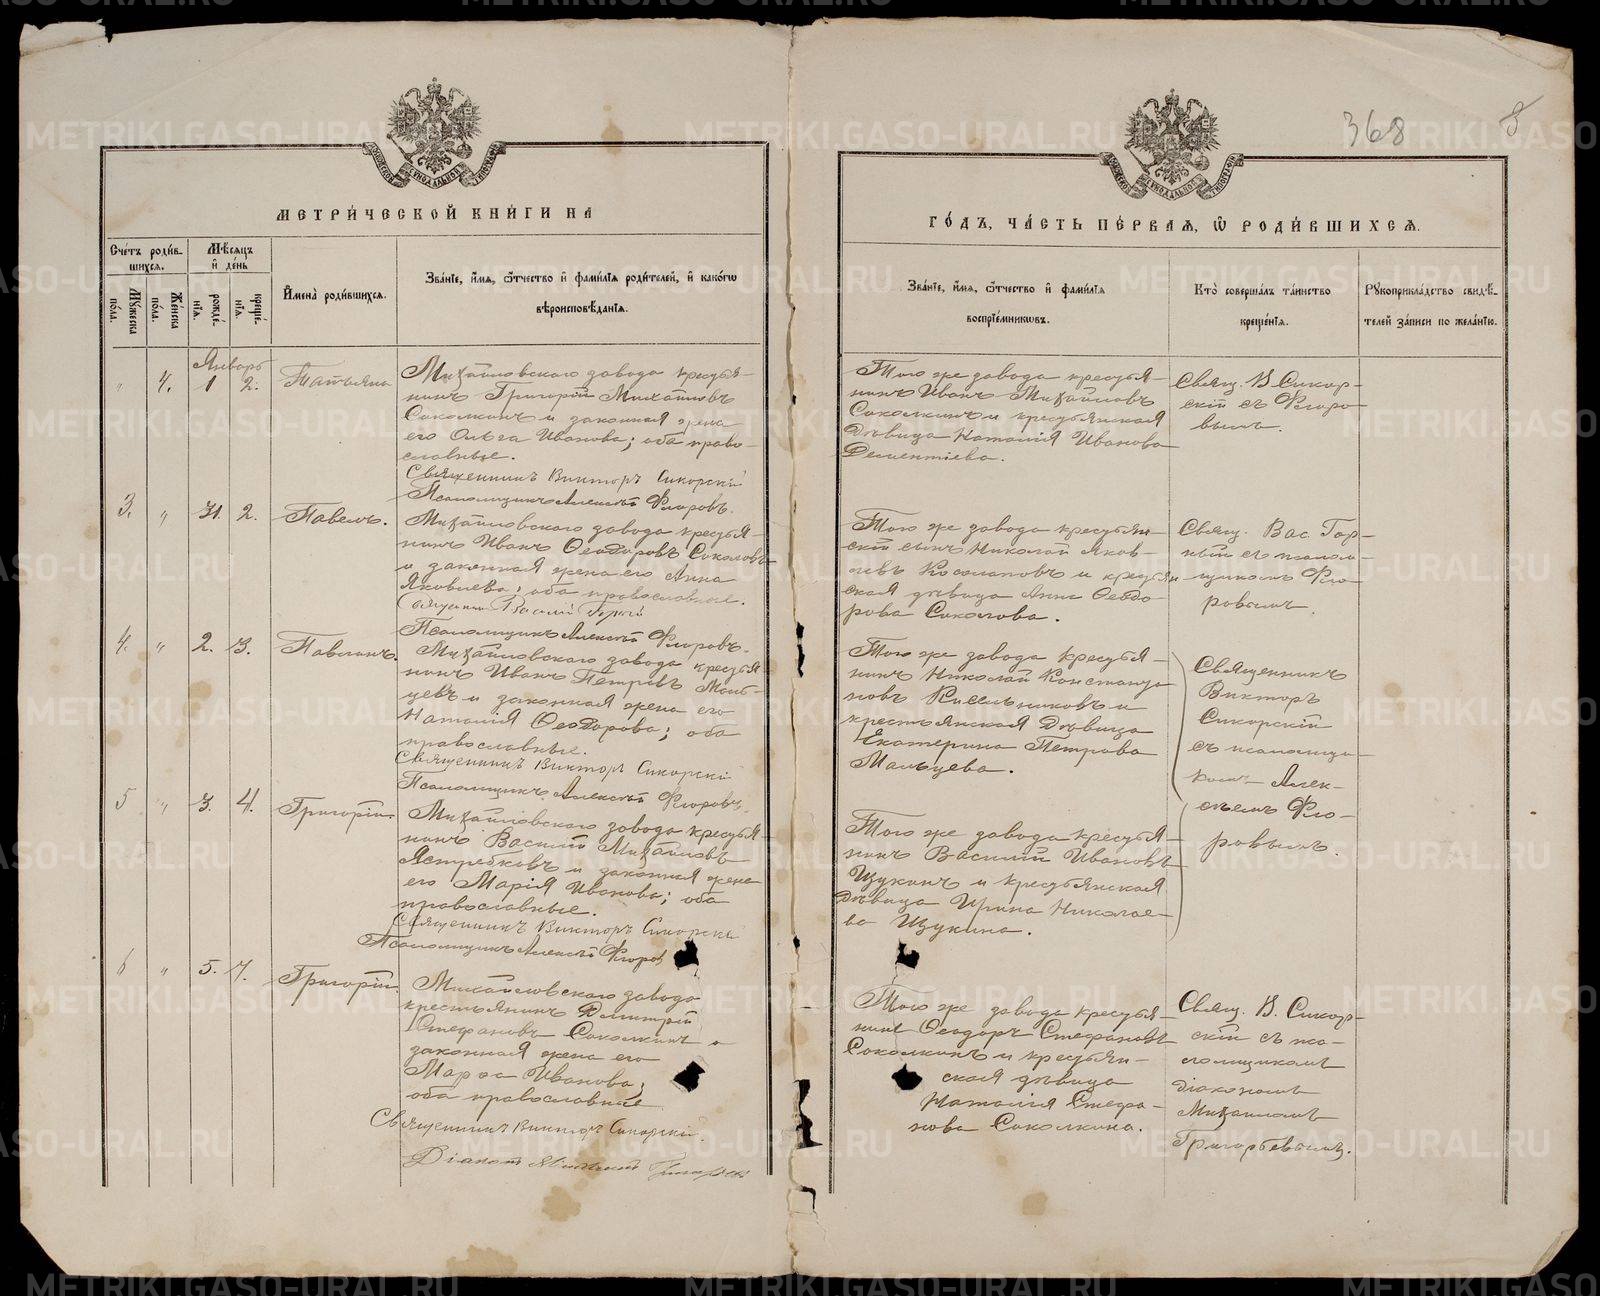 368
8
МЕТРИ́ЧЕСКОЙ КНИ́ГИ НА
ГО́ДЪ, ЧА́СТЬ ПЕ́РВАЯ, Ѽ РОДИ́ВШИХСЯ.
Сче́тъ роди́в-
шихся.
Мѣ́сяцъ
и҆ де́нь
Мꙋжеска
по́ла.
Же́нска
по́ла.
рожде́-
нїѧ.
креще́-
нїѧ.
И҆мена̀ роди́вшихся.
Зва́нїе, и҆́мѧ, ѻ҆́тчество и҆ фами́лїѧ роди́телей, и҆ како́гѡ
вѣроисповѣ́данїѧ.
Зва́нїе, и҆́мѧ, ѻ҆́тчество и҆ фами́лїѧ
воспрїе́мникѡвъ.
Кто̀ соверша́лъ та́инство
креще́нїѧ.
Рꙋкоприкла́дство свидѣ́-
телей за́писи по жела́нїю.
Январь
" 4. 1 2. Татьяна
Михайловскаго завода крестья-
нинъ Григорій Михайловъ
Соколкинъ и законная жена
его Ольга Иванова; оба право-
славные.
Священникъ Викторъ Сикорскій
Псаломщикъ Алексѣй Флоровъ.
Того же завода крестья-
нинъ Иванъ Михайловъ
Соколкинъ и крестьянская
дѣвица Наталія Иванова
Дементіева.
Свящ. В. Сикор-
скій съ Флоро-
вымъ.
3. " 31. 2. Павелъ.
Михайловскаго завода крестья-
нинъ Иванъ Ѳеодоровъ Соколовъ
и законная жена его Анна
Яковлева; оба православные.
Священникъ Василій Горный
Псаломщикъ Алексѣй Флоровъ.
Того же завода крестьян-
скій сынъ Николай Яков-
левъ Косолаповъ и крестьян
ская дѣвица Анна Ѳеодо-
рова Соколова.
Свящ. Вас. Гор-
ный съ псалом-
щикомъ Фло-
ровымъ.
4. " 2. 3. Павелъ.
Михайловскаго завода крестья
нинъ Иванъ Петровъ Маль-
цевъ и законная жена его
Наталія Ѳеодорова; оба
православные.
Священникъ Викторъ Сикорскій
Псаломщикъ Алексѣй Флоровъ.
Того же завода крестья-
нинъ Николай Константи
новъ Кисельниковъ и
крестьянская дѣвица
Екатерина Петрова
Мальцева.
Священникъ
Викторъ
Сикорскій
съ псаломщи-
комъ Алек-
сѣемъ Фло-
ровымъ.
5 " 3. 4. Григорій.
Михайловскаго завода крестья-
нинъ Василій Михайловъ
Ястребковъ и законная жена
его Марія Иванова; оба
православные.
Священникъ Викторъ Сикорскій
Псаломщикъ Алексѣй Флоров
Того же завода крестья-
нинъ Василій Ивановъ
Щукинъ и крестьянская
дѣвица Ирина Николае-
ва Щукина.
6 " 5. 7. Григорій.
Михайловскаго завода
крестьянинъ Димитрій
Стефановъ Соколкинъ и
законная жена его
Марѳа Иванова;
оба православные
Священникъ Викторъ Сикорскій.
Діаконъ Михаилъ
Того же завода крестья-
нинъ Ѳеодоръ Стефановъ
Соколкинъ и крестьян-
ская дѣвица
Наталія Стефа-
нова Соколкина.
Свящ. В. Сикор-
скій съ пса-
ломщикомъ
діакономъ
Михаиломъ
Григорьевымъ.